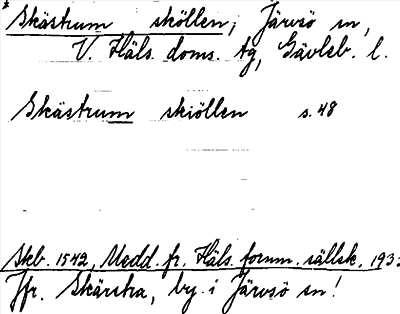 Skästrum sköllen, Järvsö sn,
V. Häls. doms. tg, Gävleb. l.
Skästrum skiöllen s. 48
Skb. 1542, Medd. fr. Häls. fornm. sällsk. 193
Jfr. Skästra, by i Järvsö sn!